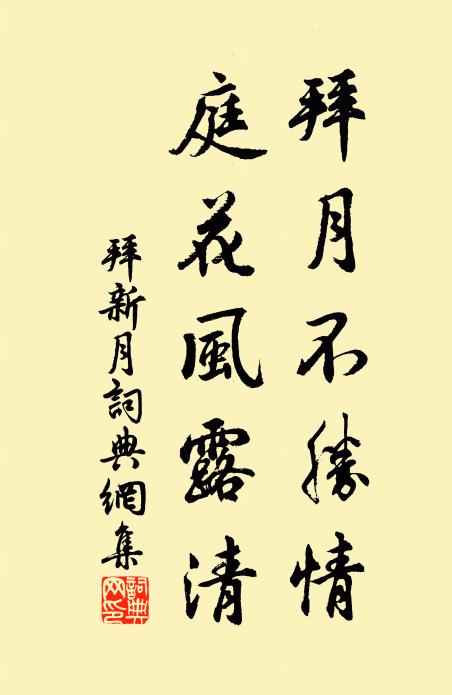 拜月不勝情
庭花風露清
拜新月詞典網集
詞典
網印